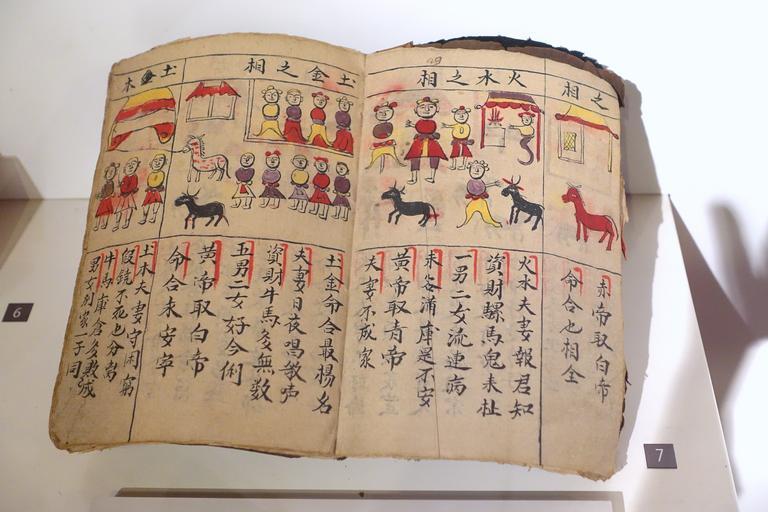 之相
赤帝取白帝
命合也相全
火水之相
火水夫妻報君知
資財騾馬鬼来扯
一男二女流連病
不安
黄帝取青帝
夫妻不成家
土金之相
土金命合最楊名
夫妻日夜唱声
資財牛馬多無数
五男二女好今俐
黄帝取白帝
命合未安寕
土木
土木夫妻守閑窮
假饒不死也分离
牛馬庫倉多
男女別家一子同
6
7